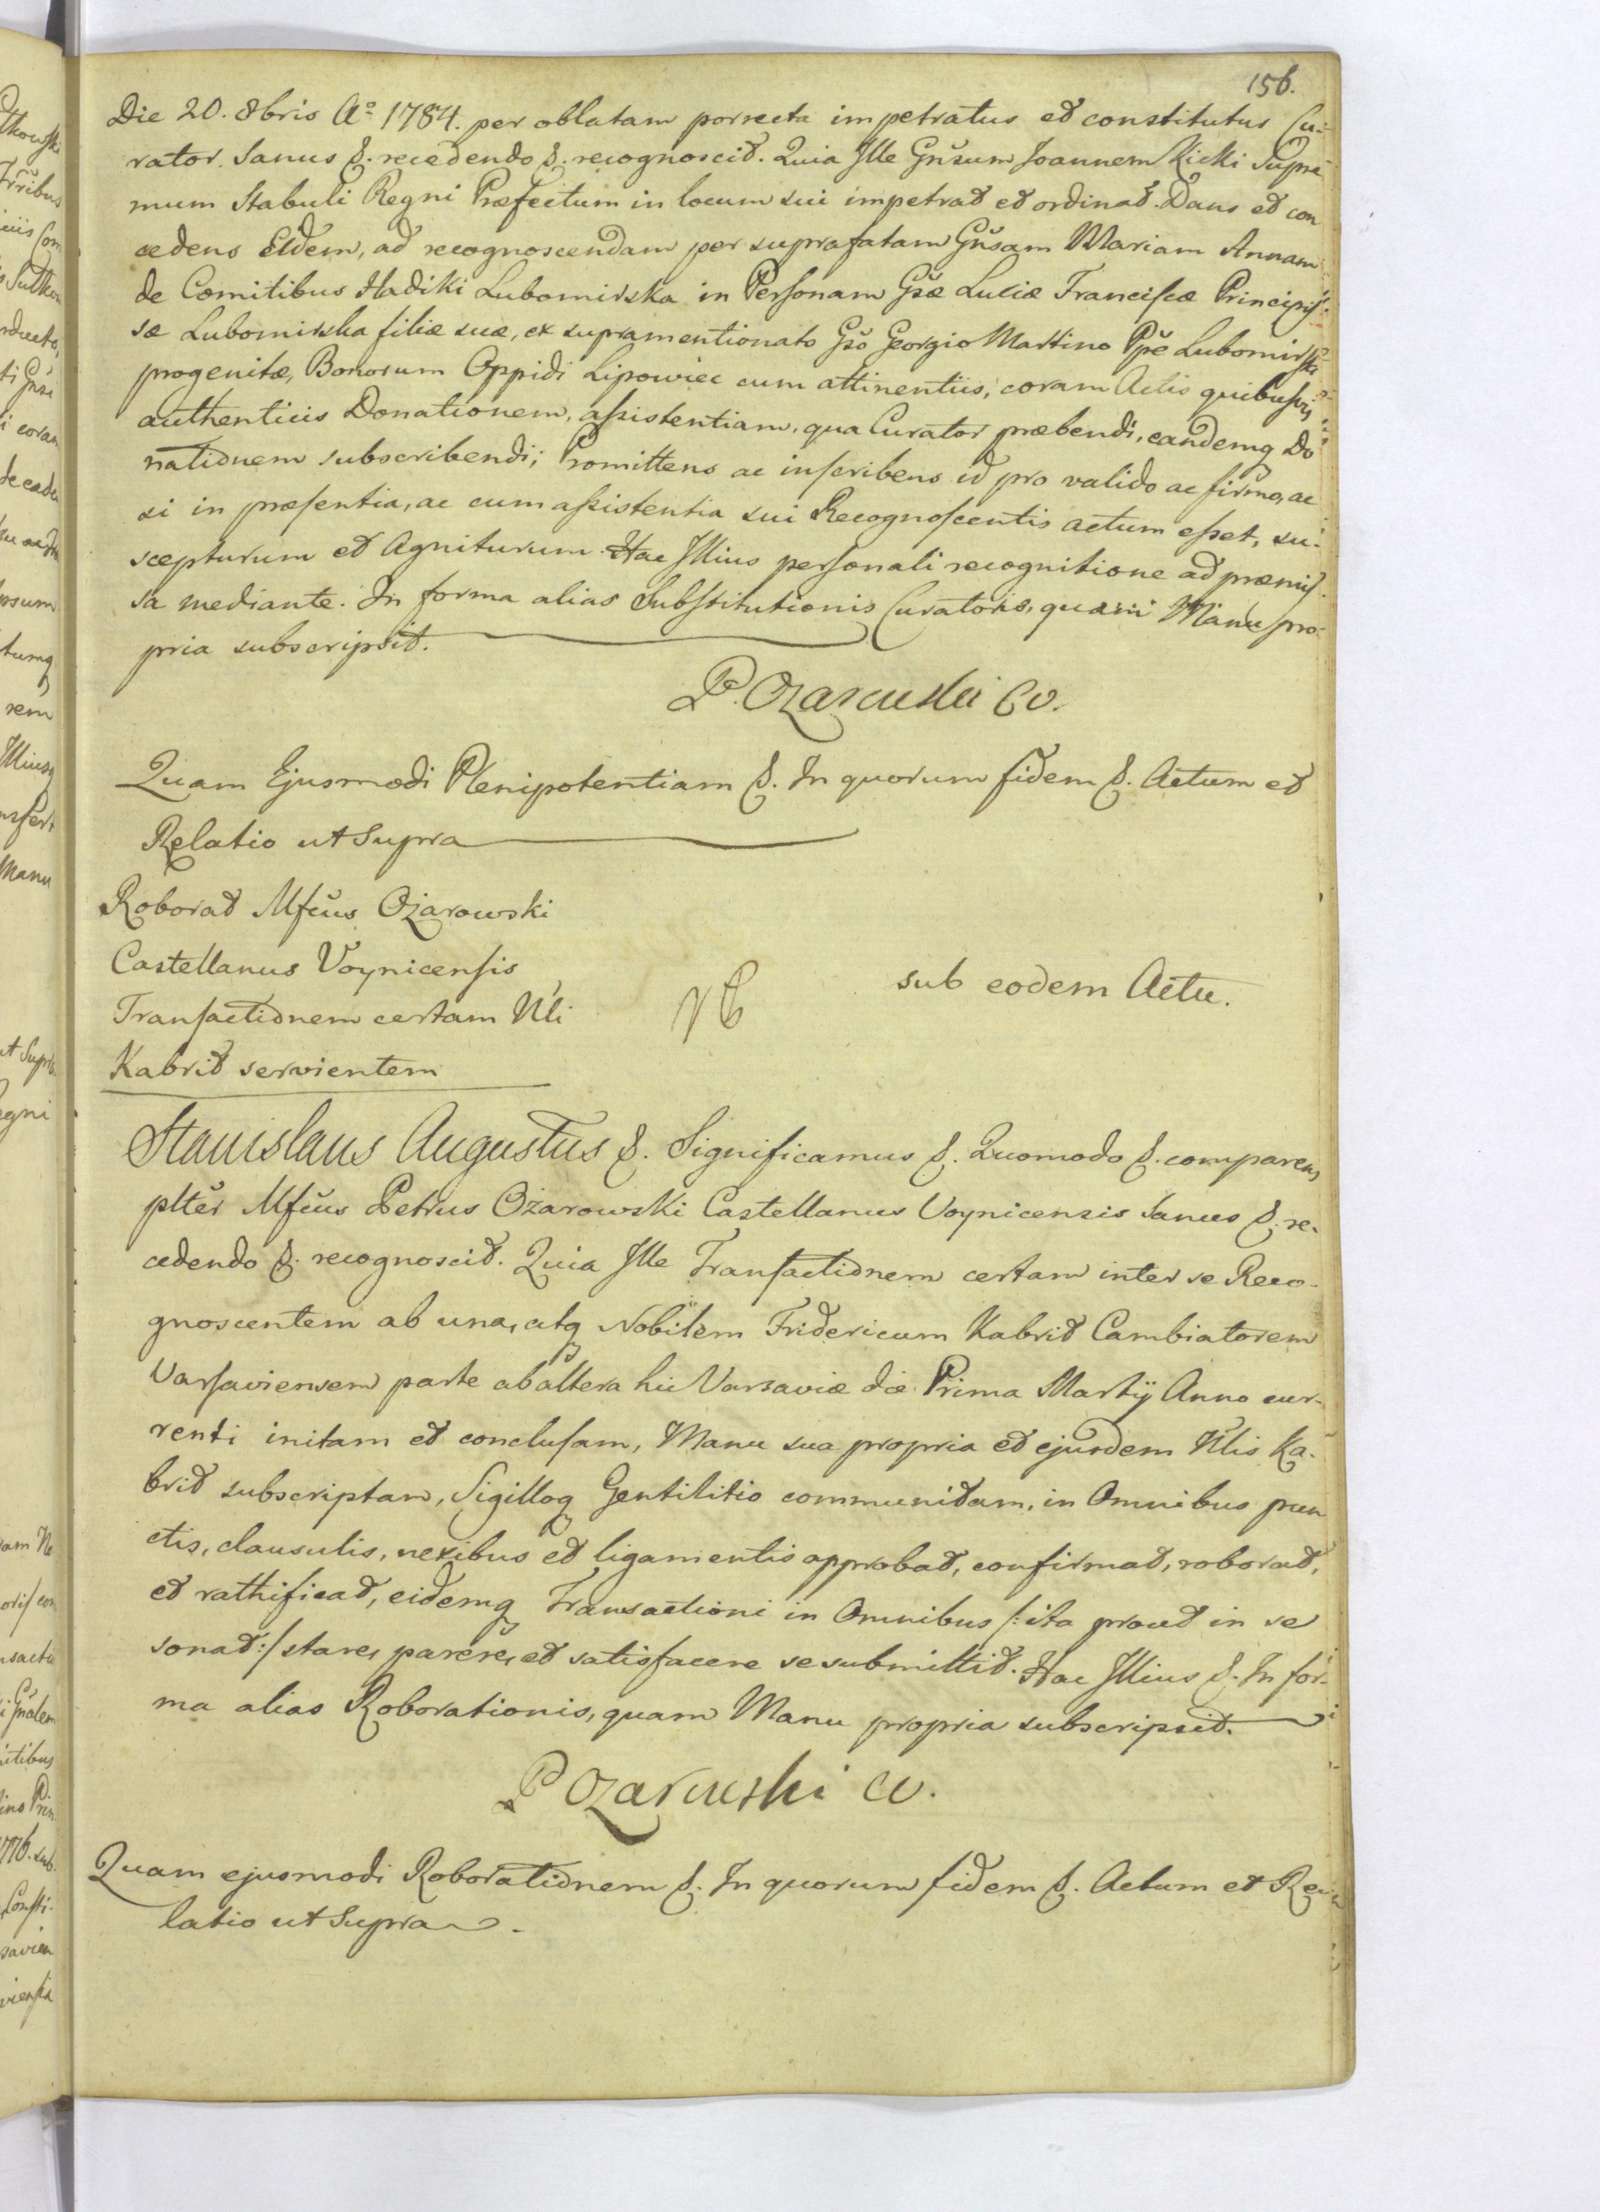 156.
Die 20. 8bris Aº 1784. per oblatam porrecta impetratus et constitutus Cu-
rator. Sanus &. recedendo &. recognoscit. Quia Ille Gñsum Joannem Kicki Supre-
mum Stabuli Regni Præfectum in locum sui impetrat et ordinat. Dans et con
cedens Eidem, ad recognoscendam per suprafatam Gñsam Mariam Annam
de Comitibus Hadiki Lubomirska in Personam Gsæ Luciæ Franciscæ Principis-
sæ Lubomirska filiæ suæ, ex supramentionato Gso Georgio Martino Ppe Lubomirski
progenitæ, Bonorum Oppidi Lipowiec cum attinentiis, coram Actis quibusvis
authenticis Donationem, assistentiam, qua Curator præbendi, eandemq Do
nationem subscribendi; Promittens ac inscribens id pro valido ac firmo, ac
si in præsentia, ac cum assistentia sui Recognoscentis actum esset, su-
scepturum et Agniturum. Hac Illius personali recognitione ad præmis-
sa mediante. In forma alias Substitutionis Curatoris, quam Manu pro-
pria subscripsit.
P. Ozarowski CV.
Quam Ejusmodi Plenipotentiam &. In quorum fidem &. Actum et
Relatio ut Supra
Roborat Mfcus Ożarowski
Castellanus Voynicensis
Transactionem certam Nli
Kabrit servientem
sub eodem Actu.
Stanislaus Augustus &. Significamus &. Quomodo &. comparens
plter Mfcus Petrus Ożarowski Castellanus Voynicensis Sanus &. re-
cedendo &. recognoscit. Quia Ille Transactionem certam inter se Reco-
gnoscentem ab una, atq Nobilem Fridericum Kabrit Cambiatorem
Varsaviensem parte ab altera hic Varsaviæ die Prima Martij Anno cur-
renti initam et conclusam, Manu sua propria et ejusdem Nlis Ka-
brit subscriptam, Sigilloq Gentilitio communitam, in Omnibus pun
ctis, clausulis, nexibus et ligamentis approbat, confirmat, roborat,
et rathificat, eidemq Transactioni in Omnibus /: ita prout in se
sonat :/ stare, parere, et satisfacere se submittit. Hac Illius &. In for-
ma alias Roborationis, quam Manu propria subscripsit.
P Ozarowski CV.
Quam ejusmodi Roborationem &. In quorum fidem &. Actum et Re-
latio ut Supra.